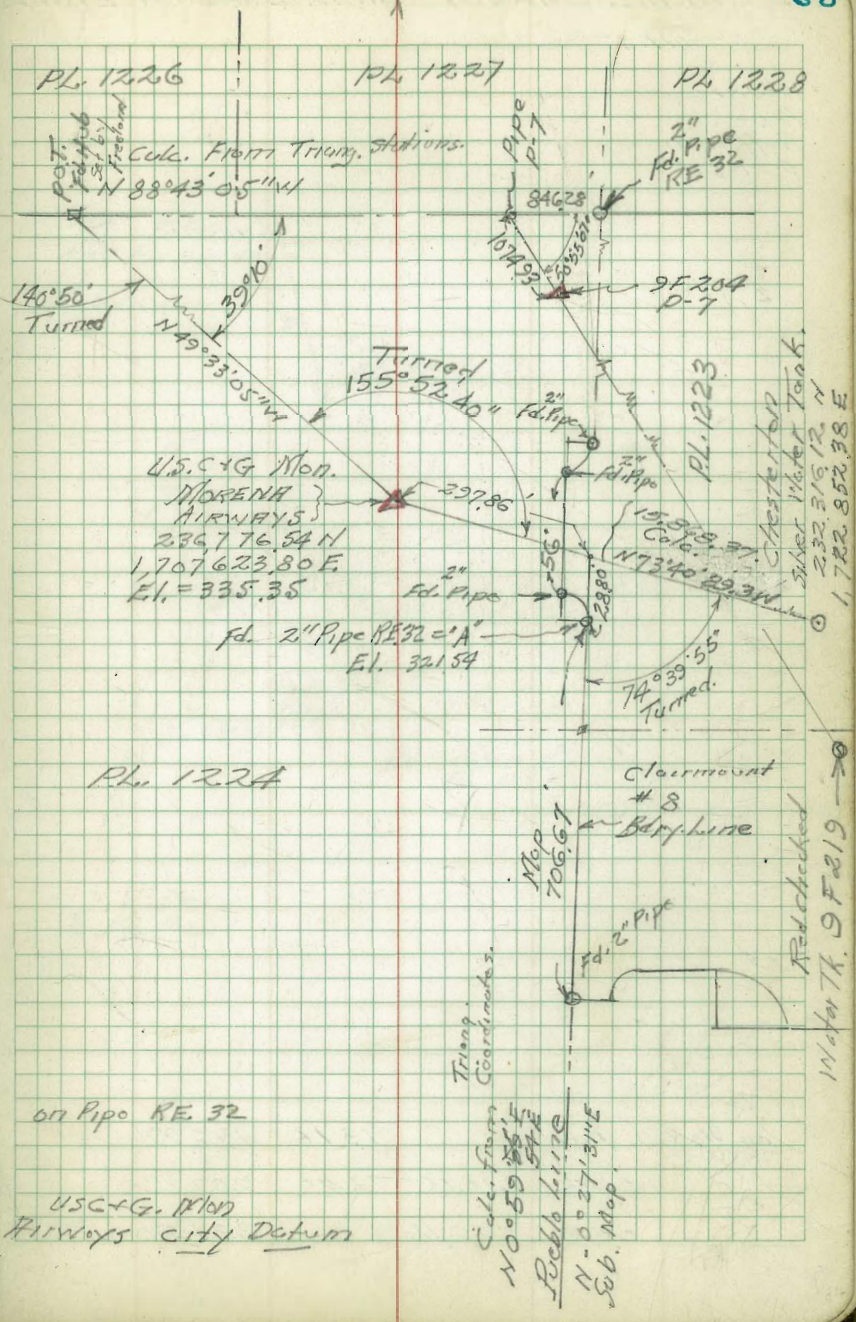 68
PL. 1226
PL 1227
PL 1228
P.O.T.
Fd. Hub
Set by
Freeland
Calc. From Triang. Stations.
N 88°43'05"W
Pipe
P-7
2"
Fd. Pipe
RE 32
846.28'
1074.93'
50°55'07"
9F204
P-7
39°10'
140°50'
Turned
N 49°33'05"W
Turned
155°52'40"
2"
Fd. Pipe
2"
Fd. Pipe
PL. 1223
Chesterton
Silver Water Tank.
232,316.12 N
1,722,852.38 E
U.S.C.&G. Mon.
MORENA
AIRWAYS
236,776.54 N
1,707,623.80 E.
El. = 335.35
297.86'
15,868.37
Calc.
N73°40'29.3W
56'
28.80'
2"
Fd. Pipe
Fd. 2" Pipe RE.32 = "A"
El. 321.54
74°39'55"
Turned.
PL. 1224
Clairmount
# 8
Bdry. Line
Map
706.67'
Fd. 2" Pipe
Red checked
Water Tk. 9F219
Triang.
Coordinates.
Calc. from
N 0°59' E
54 E
Pueblo Line
N - 0°27'31"E
Sub. Map.
on Pipe RE. 32
USC&G. Mon
Airways City Datum